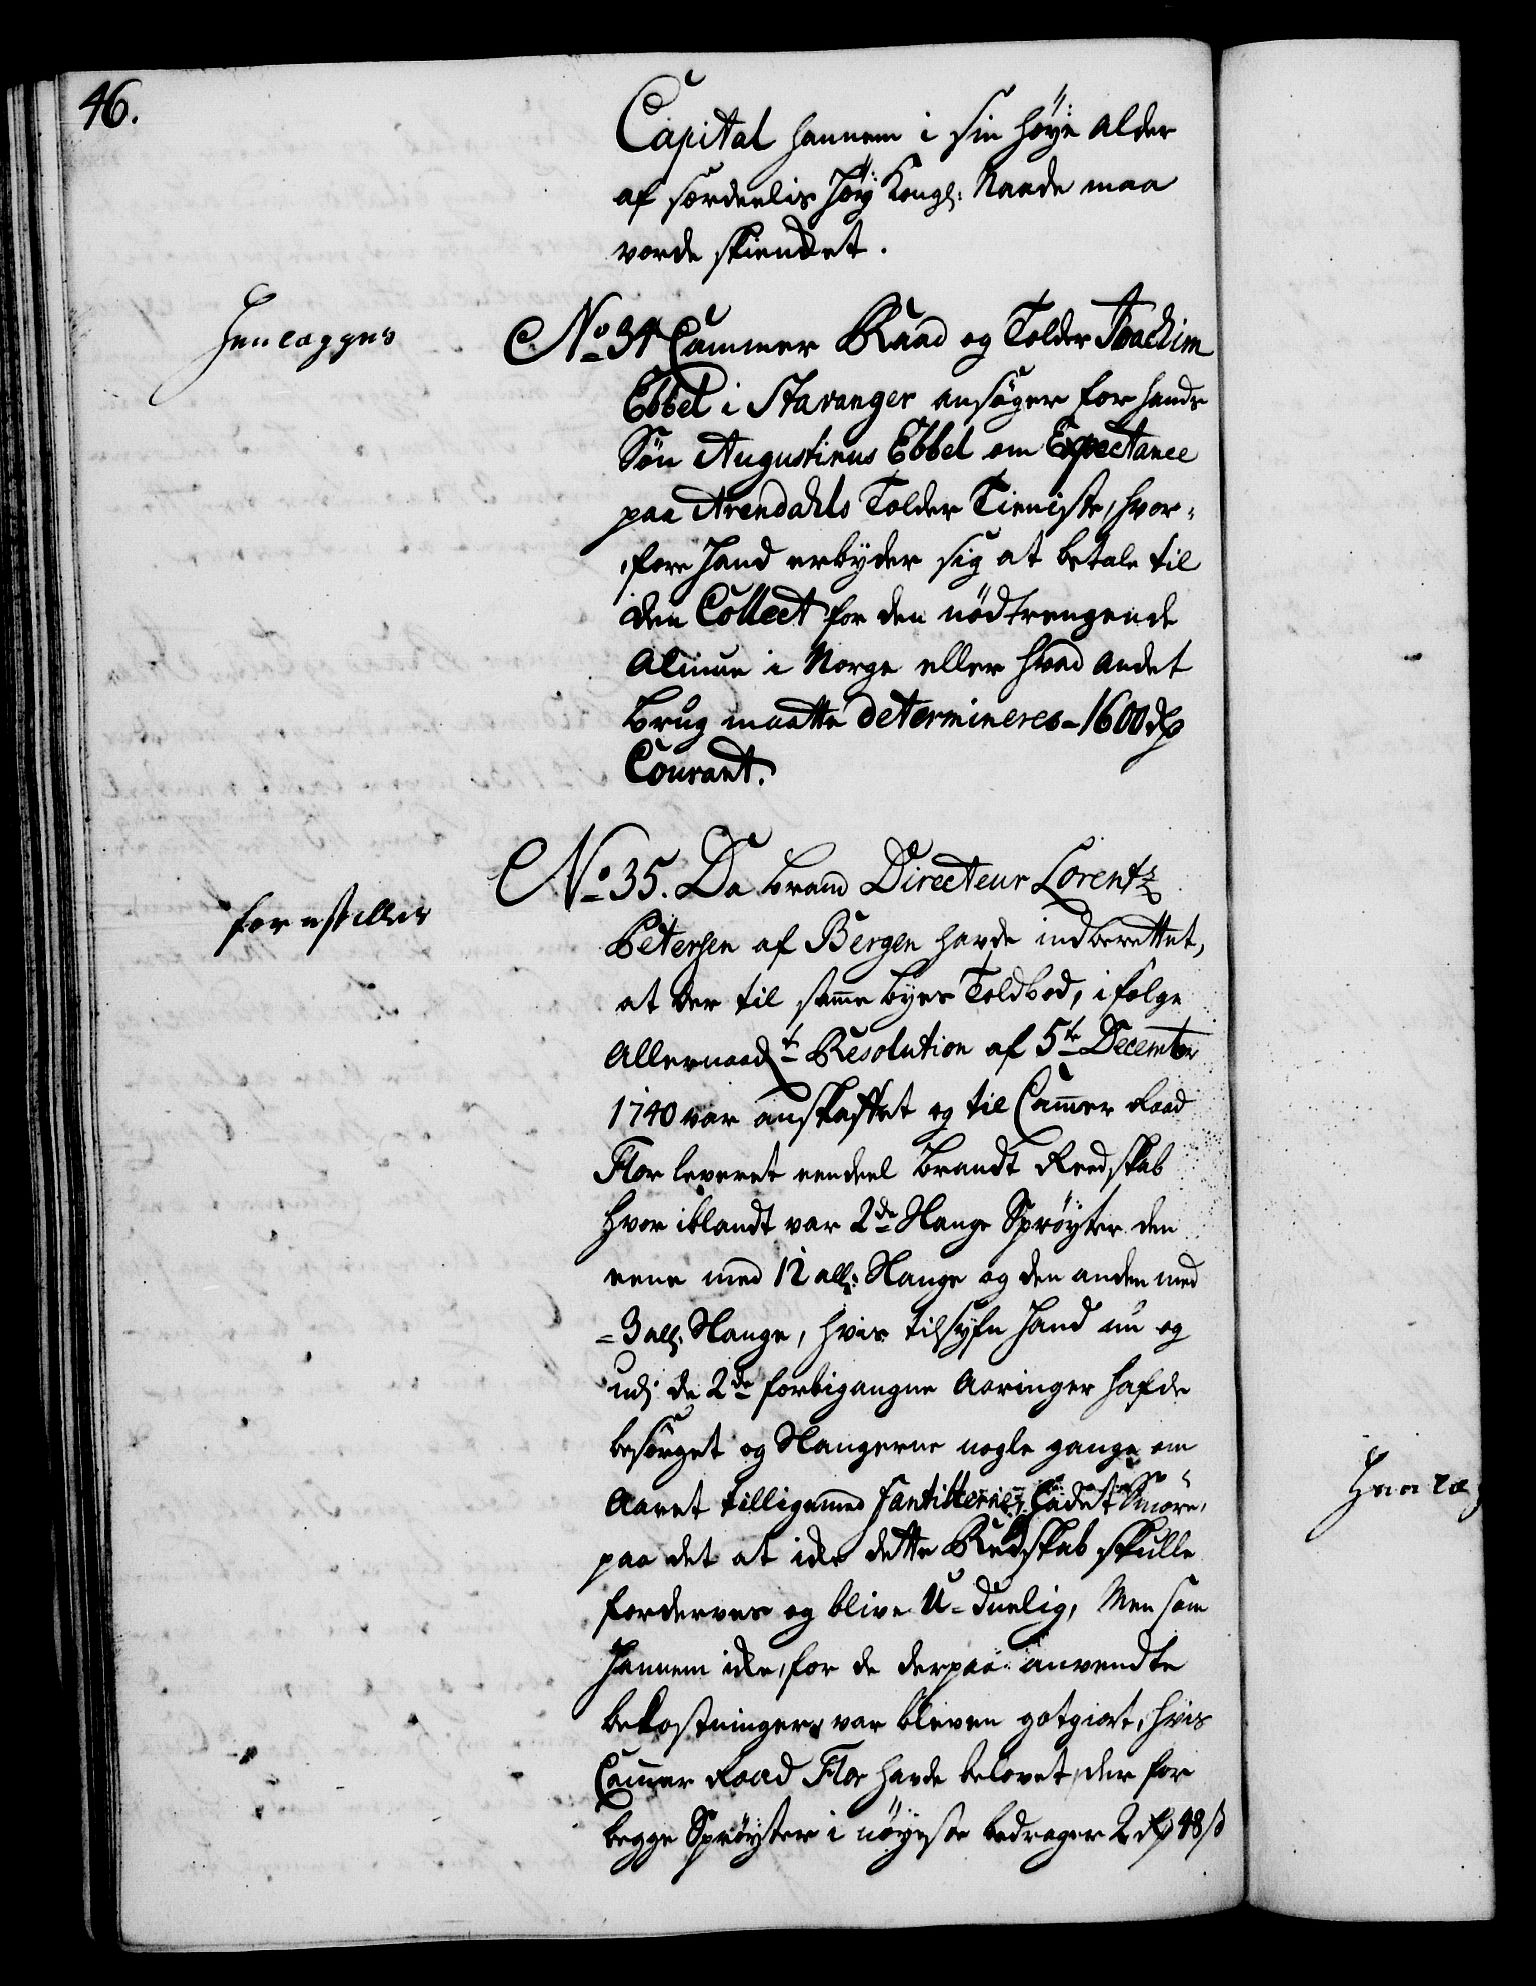 46.
Capital hannem i sin høye Alder
af særdeelis høy Kongl: Naade maa
vorde skienket.
Henlægges
No 34 Cammer Raad og Tolder Joachim
Ebbel i Stavanger ansøger for hands
Søn Augustinus Ebbel om Expectance
paa Arendahls Tolder Tieniste, hvor-
fore Hand erbyder sig at betale til
den Collect for den nødtrengende
Almue i Norge eller hvad andet
brug maatte determineres - 1600 rdr
Courant.
forestilles
No 35. Da brand Directeur Lorentz
Petersen af Bergen havde indberettet,
at der til samme byes Toldbod, i følge
Allernaadt Resolution af 5te December
1740 var anskaffet og til Cammer Raad
Flor leveret eendeel brandt Reedskab
hvor iblandt var 2de Slange Sprøyter den
eene med 12 all: Slange og den anden med
- 3 all: Slange, hvis tilsyfn hand nu og
udj de 2de forbigangne Aaringer hafde
besørget og Slangerne nogle gange om
Aaret tilligemed ladet Smøre,
paa det at icke dette Redskab skulle
forderves og blive U-duelig, Men som
hannem icke for de derpaa anvendte
bekostninger var bleven gotgiort, hvis
Cammer Raad Flor havde belovet, der for
begge Sprøyter i nøyeste bedrager 2 rdr 48 s
Henlæg